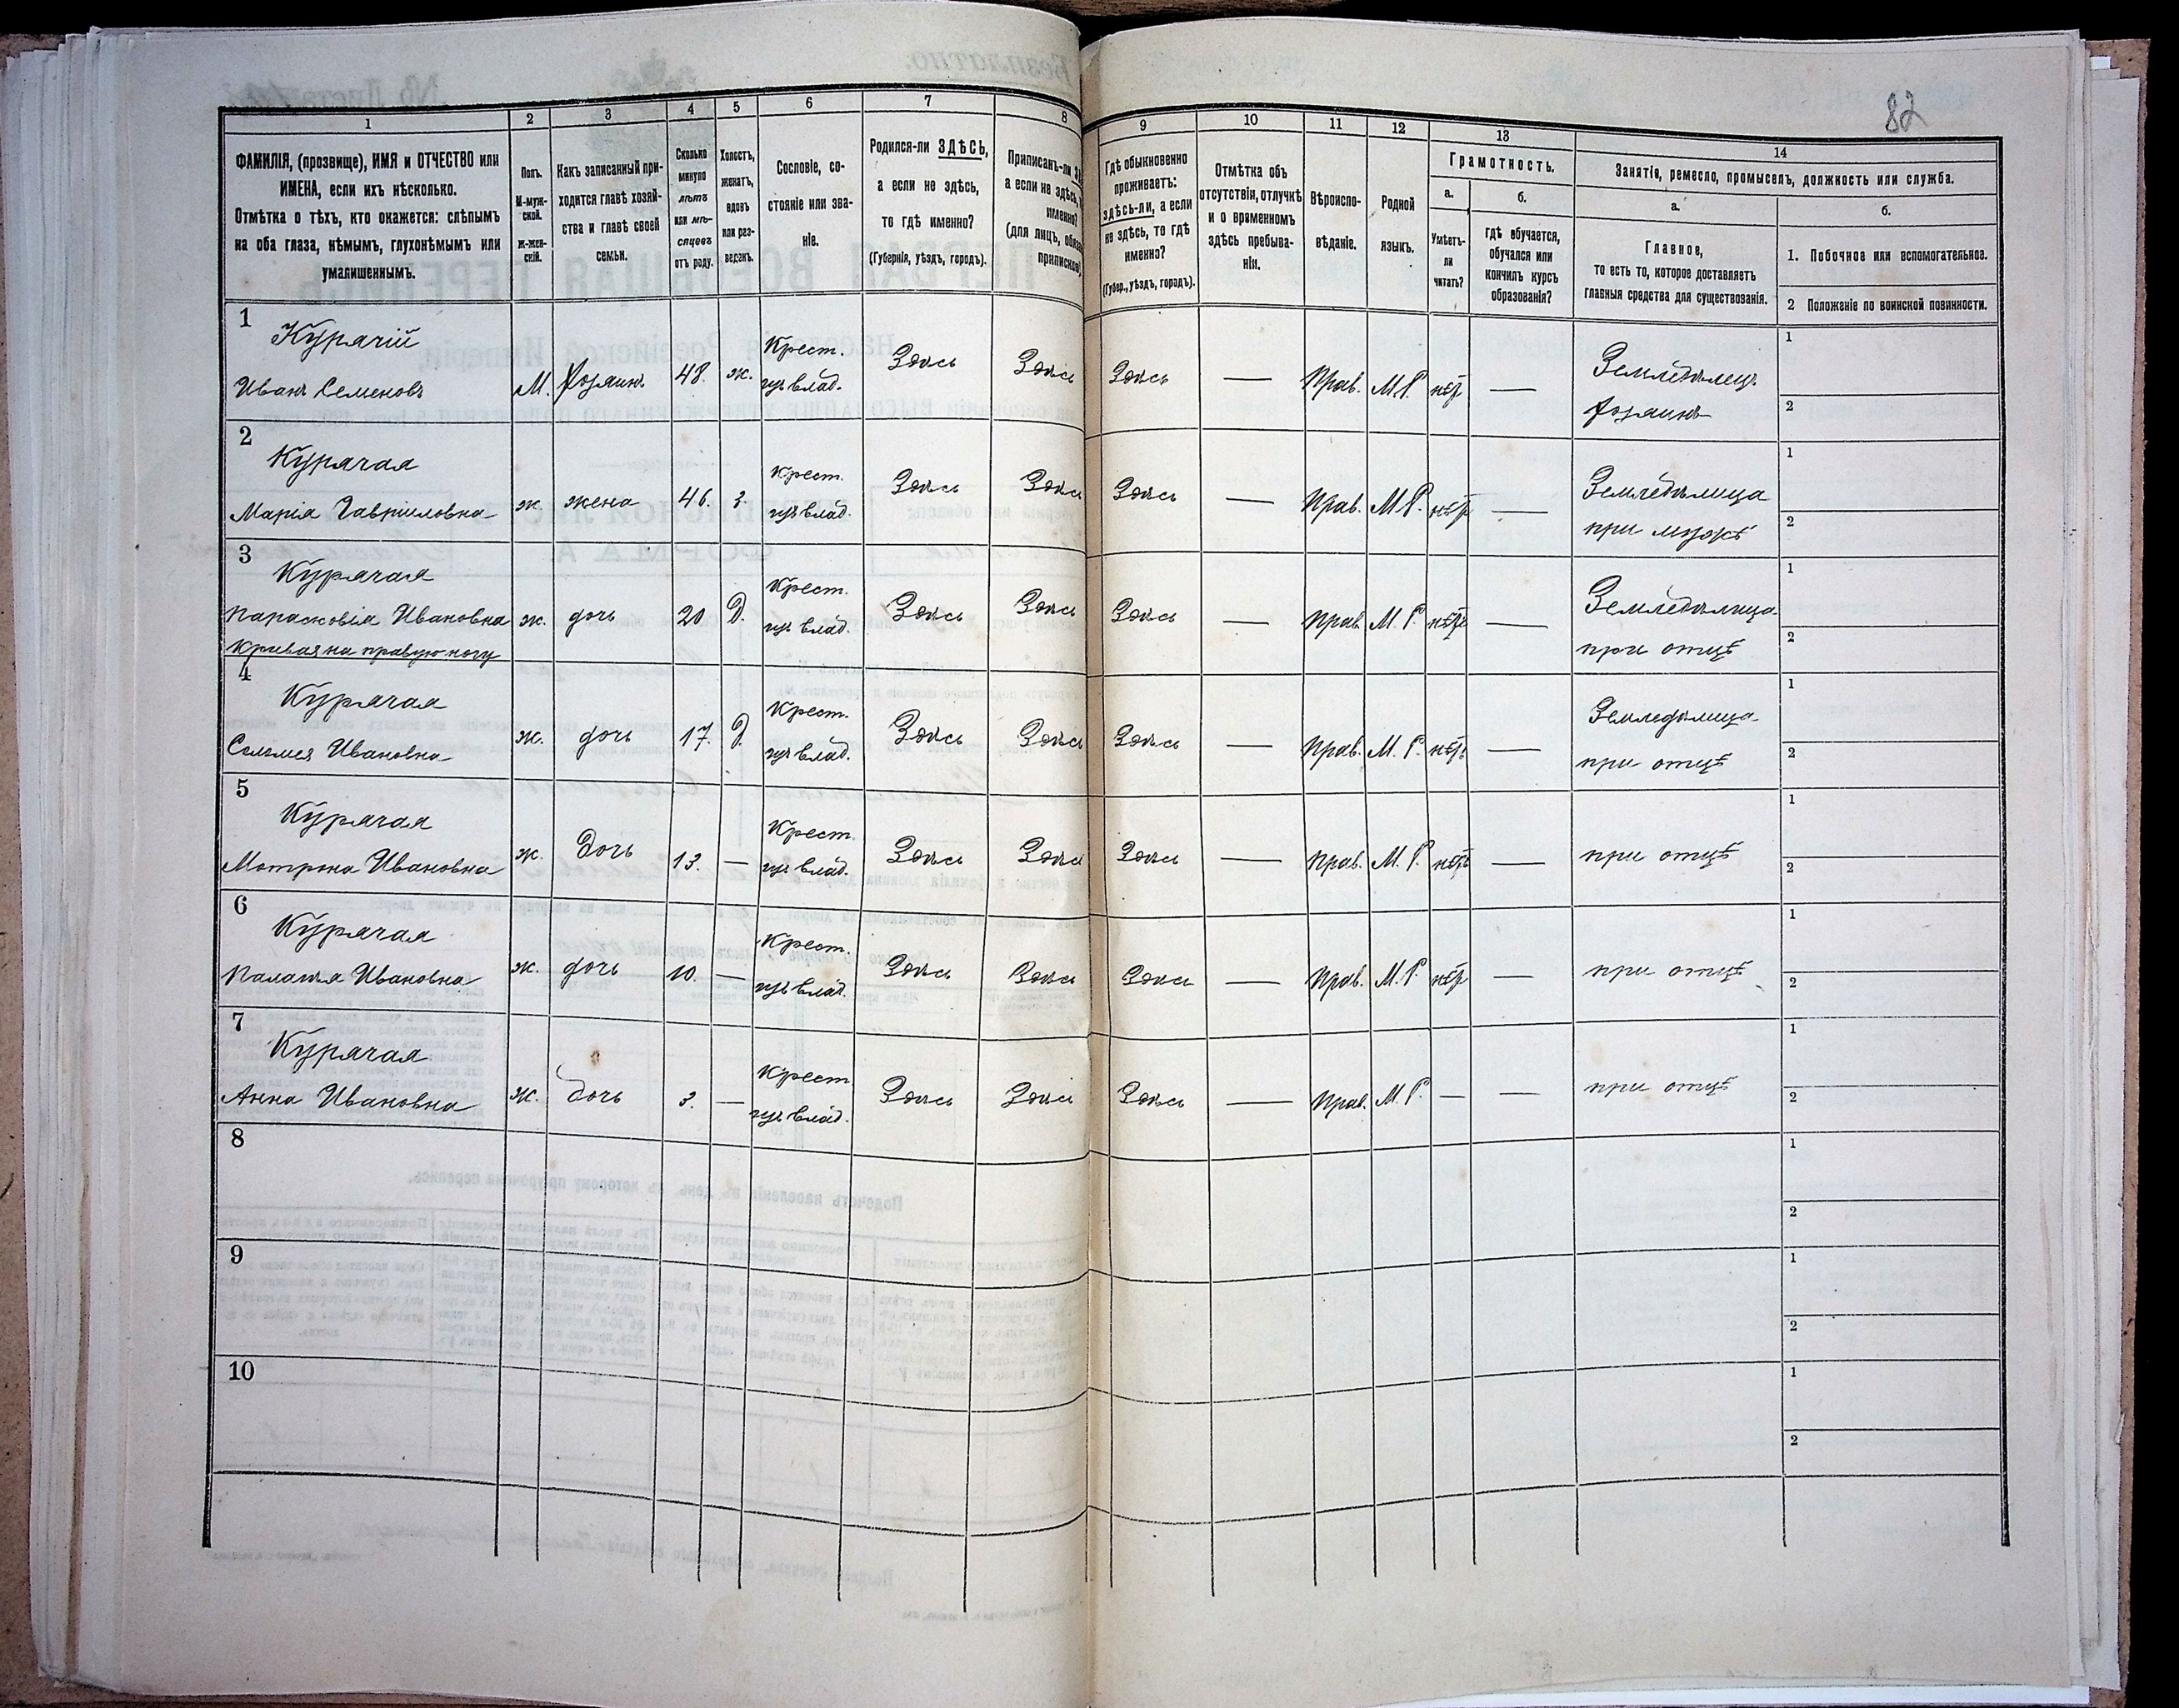 82
1
2
3
4
5
6
7
8
9
10
11
12
13
14
ФАМИЛІЯ, (прозвище), ИМЯ и ОТЧЕСТВО или
ИМЕНА, если ихъ нѣсколько.
Отмѣтка о тѣхъ, кто окажется: слѣпымъ
на оба глаза, нѣмымъ, глухонѣмымъ или
умалишеннымъ.
Полъ.
М-муж-
ской.
Ж-жен-
скій.
Какъ записанный при-
ходится главѣ хозяй-
ства и главѣ своей
семьи.
Сколько
минуло
лѣтъ
или мѣ-
сяцевъ
отъ роду.
Холостъ,
женатъ,
вдовъ
или раз-
веденъ.
Сословіе, со-
стояніе или зва-
ніе.
Родился-ли ЗДѢСЬ,
а если не здѣсь,
то гдѣ именно?
(Губернія, уѣздъ, городъ).
Приписанъ-ли
а если не здѣсь,
именно?
(для лицъ,
Гдѣ обыкновенно
проживаетъ:
здѣсь-ли, а если
не здѣсь, то гдѣ
именно?
(Губер., уѣздъ, городъ).
Отмѣтка объ
отсутствіи, отлучкѣ
и о временномъ
здѣсь пребыва-
ніи.
Вѣроиспо-
вѣданіе.
Родной
языкъ.
Грамотность.
а.
б.
Умѣетъ-
ли
читать?
гдѣ обучается,
обучался или
кончилъ курсъ
образованія?
Занятіе, ремесло, промыселъ, должность или служба.
а.
б.
Главное,
то есть то, которое доставляетъ
главныя средства для существованія.
1. Побочное или вспомогательное.
2 Положеніе по воинской повинности.
1
Курячій
Иванъ Семеновъ
М. хозяинъ 48. ж.
Крест.
влад.
Здѣсь Здѣсь Здѣсь — Прав. М.Р. нѣтъ —
Земледѣлецъ
хозяинъ
1
2
2
Курячая
Марія Гавриловна
ж. жена 46. з.
Крест.
влад.
Здѣсь Здѣсь Здѣсь — Прав. М.Р. нѣтъ —
Земледѣлица
при мужѣ
1
2
3
Курячая
Парасковія Ивановна
Кривая на правую ногу
ж. дочь 20 Д.
Крест.
влад.
Здѣсь Здѣсь Здѣсь — Прав. М.Р. нѣтъ —
Земледѣлица
при отцѣ
1
2
4
Курячая
Соломея Ивановна
ж. дочь 17. Д.
Крест.
влад.
Здѣсь Здѣсь Здѣсь — Прав. М.Р. нѣтъ —
Земледѣлица
при отцѣ
1
2
5
Курячая
Мотрона Ивановна
ж. дочь 13. —
Крест.
влад.
Здѣсь Здѣсь Здѣсь — Прав. М.Р. нѣтъ — при отцѣ
1
2
6
Курячая
Палажя Ивановна
ж. дочь 10. —
Крест.
влад.
Здѣсь Здѣсь Здѣсь — Прав. М.Р. нѣтъ — при отцѣ
1
2
7
Курячая
Анна Ивановна
ж. дочь 3. —
Крест.
влад.
Здѣсь Здѣсь Здѣсь — Прав. М.Р. — — при отцѣ
1
2
8
1
2
9
1
2
10
1
2